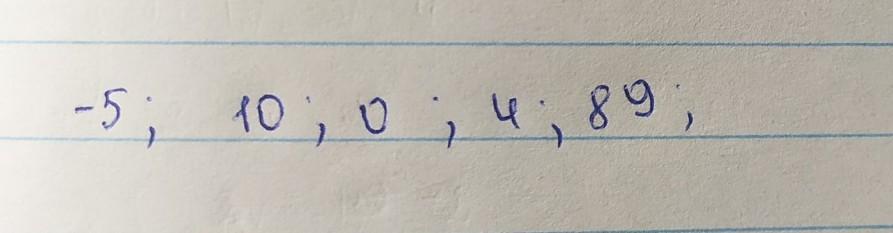 -5; 10; 0; 4; 89;